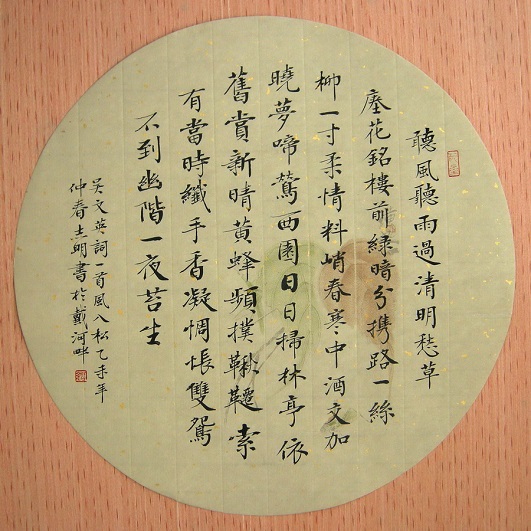 聽風聽雨過清明愁草
瘞花銘樓前綠暗分携路一絲
柳一寸柔情料峭春寒中酒交加
曉夢啼鶯西園日日掃林亭依
舊賞新晴黃蜂頻撲鞦韆索
有當時纖手香凝惆悵雙鴛
不到幽階一夜苔生
吳文英詞一首風入松乙未年
仲春志明書於戴河畔